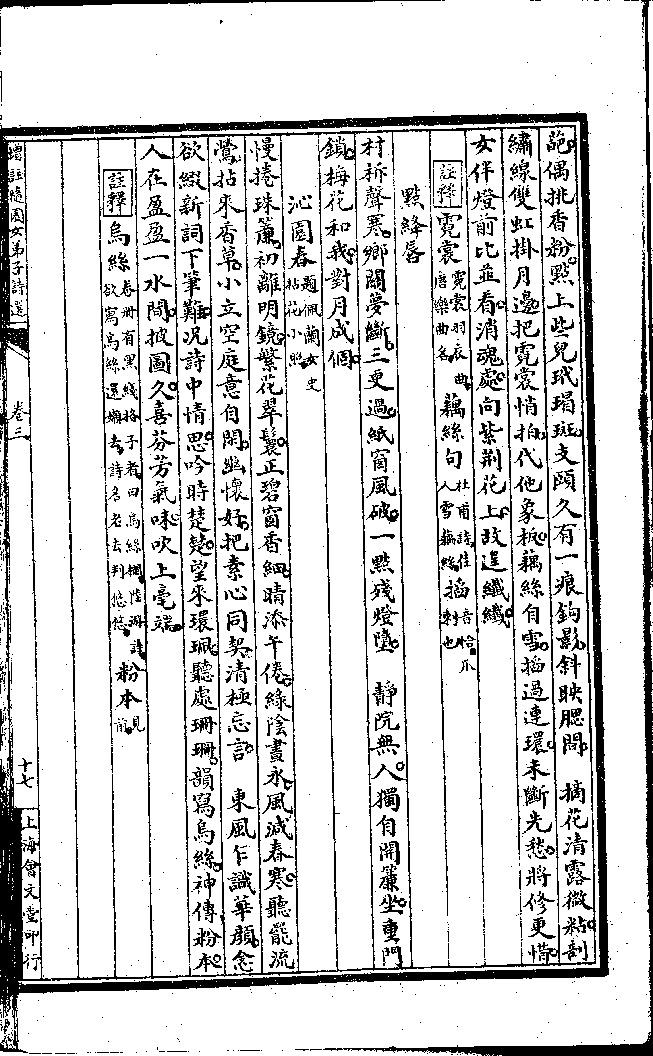 葩偶挑香粉點上些兒玳瑁斑支頤久有一痕鈎影斜映腮間　摘花清露微粘剖
繡線雙虹掛月邊把霓裳悄拍代他象板藕絲自雪掐過連環未斷先愁將修更惜
女伴燈前比並看消魂處向紫荆花上故逞纖纖
註釋　霓裳　霓裳羽衣曲唐樂曲名　藕絲句　杜甫詩佳人雪藕絲　掐　音恰爪刺也
點絳唇
村柝聲寒鄉關夢斷三更過紙窗風破一點殘燈墮　靜院無人獨自開簾坐重門
鎖梅花和我對月成個
沁園春　題佩蘭女史拈花小照
慢捲珠簾初離明鏡繁花翠鬟正碧窗香細晴添午倦綠陰晝永風減春寒聽罷流
鶯拈來香草小立空庭意自閒幽懷好把素心同契清極忘言　東風乍識華顏愈
欲綴新詞下筆難况詩中情思吟時楚楚望來環珮聽處珊珊韻寫烏絲神傳粉本
人在盈盈一水間披圖久喜芬芳氣味吹上毫端
註釋　烏絲　卷册有黑綫格子者曰烏絲欄惟珊詩欲寫烏絲還嬾去詩名老去判悠悠　粉本　見前
增註隨園女弟子詩選　卷三　十七　上海會文堂印行